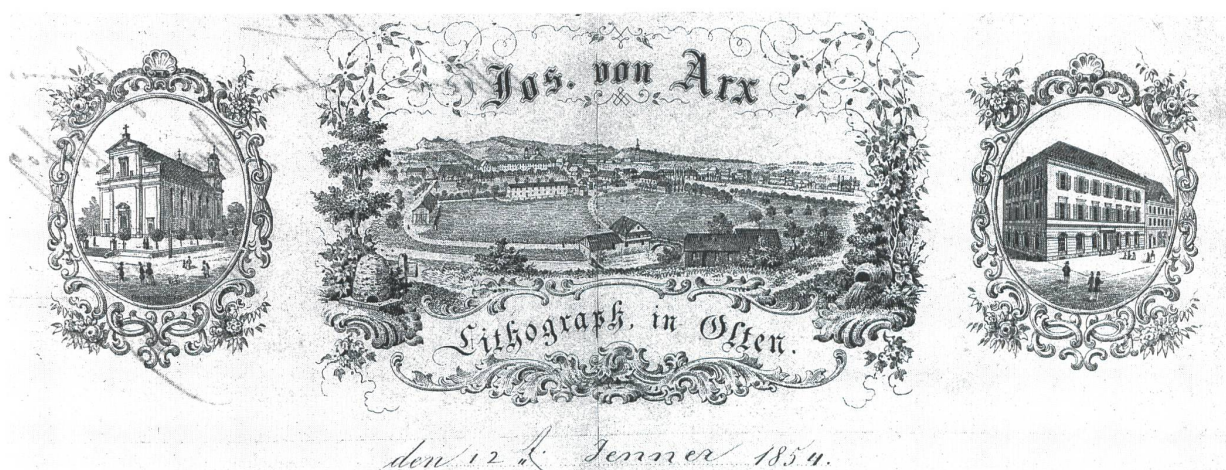 Jos. von Arx
Lithograph, in Olten.
den 12 Jenner 1854.